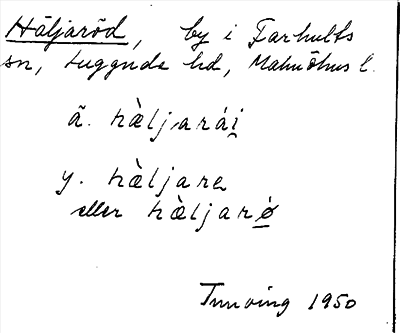 Häljaröd, by i Farhults
sn, Luggude hd, Malmöhus l.
ä. hæ̀ljarái̯
y. hæ̀ljare
eller hæ̀ljarø̲
1950